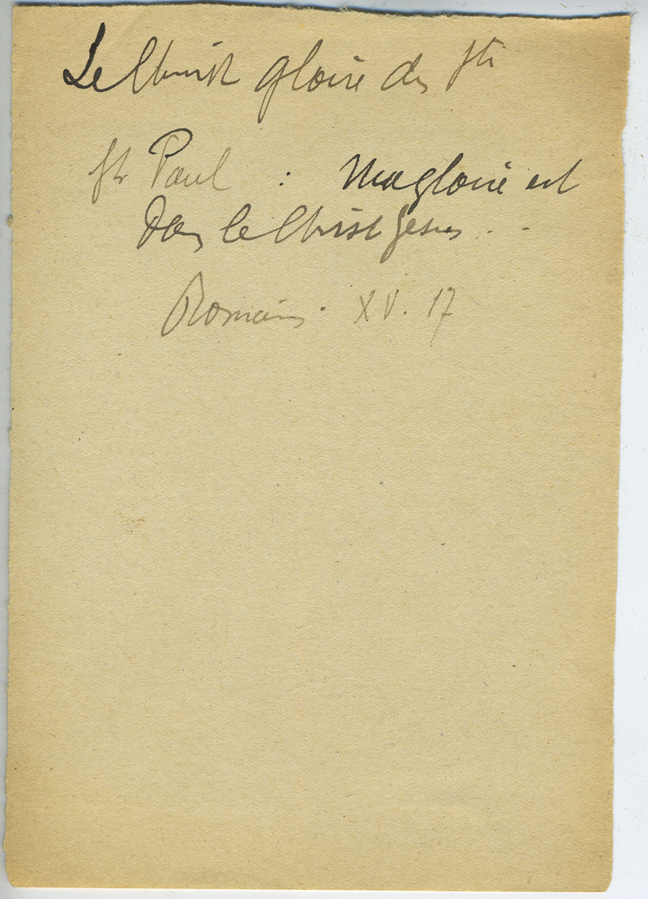 Le Christ gloire des Sts
St Paul : Ma gloire est
dans le Christ Jésus . .
Romains . XV. 17